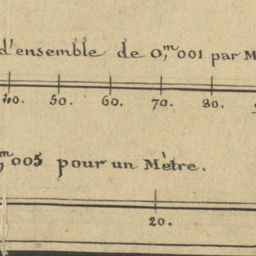 d'ensemble de 0,ᵐ001 par M
40. 50. 60. 70. 80.
,ᵐ005 pour un Mètre.
20.